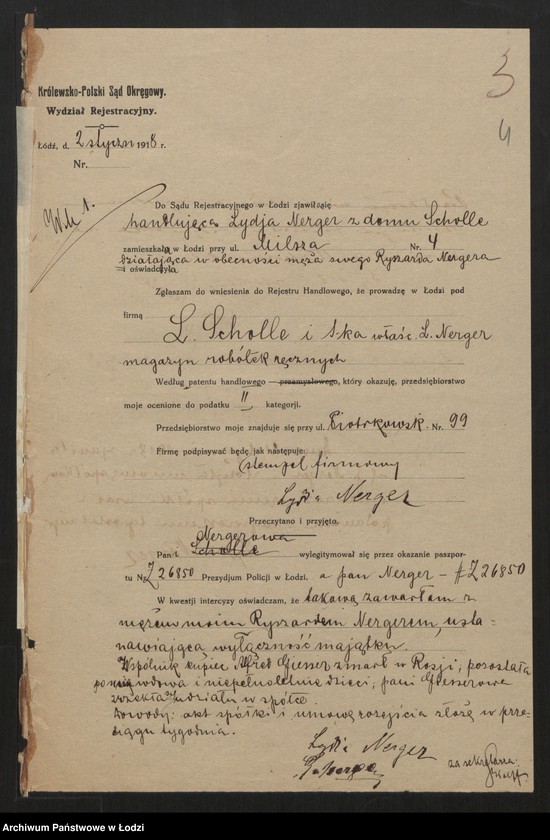 3
4
Królewsko-Polski Sąd Okręgowy.
Wydział Rejestracyjny.
Łódź, d. 2 styczn 1918 r.
Nr.
W.M. 1.
Do Sądu Rejestracyjnego w Łodzi zjawiła się
handlująca Lydja Nerger z domu Scholle
zamieszkała w Łodzi przy ul. Milsza Nr. 4
działająca w obecności męża swego Ryszarda Nergera
i oświadczyła
Zgłaszam do wniesienia do Rejestru Handlowego, że prowadzę w Łodzi pod
firmą L. Scholle i S-ka właśc. L. Nerger
magazyn robótek ręcznych
Według patentu handlowego — przemysłowego, który okazuję, przedsiębiorstwo
moje ocenione do podatku II kategorji.
Przedsiębiorstwo moje znajduje się przy ul. Piotrkowsk. Nr. 99
Firmę podpisywać będę jak następuje:
stempel firmowy
Lydia Nerger
Przeczytano i przyjęto.
Nergerowa
Pan i Scholle wylegitymował się przez okazanie paszpor-
tu Nr. Z 26850 Prezydjum Policji w Łodzi, a pan Nerger — Z 26850
W kwestji intercyzy oświadczam, że takową zawarłam z
mężem moim Ryszardem Nergerem, usta-
nawiającą wyłączność majątku.
Wspólnik kupiec Alfred Giesser zmarł w Rosji; pozostała
po nim wdowa i niepełnoletnie dzieci; pani Giesserowa
zrzekła się udziału w spółce.
Dowody: akt spółki i umowę rozejścia złożę w prze-
ciągu tygodnia.
Lydia Nerger
za sekretarza
Archiwum Państwowe w Łodzi